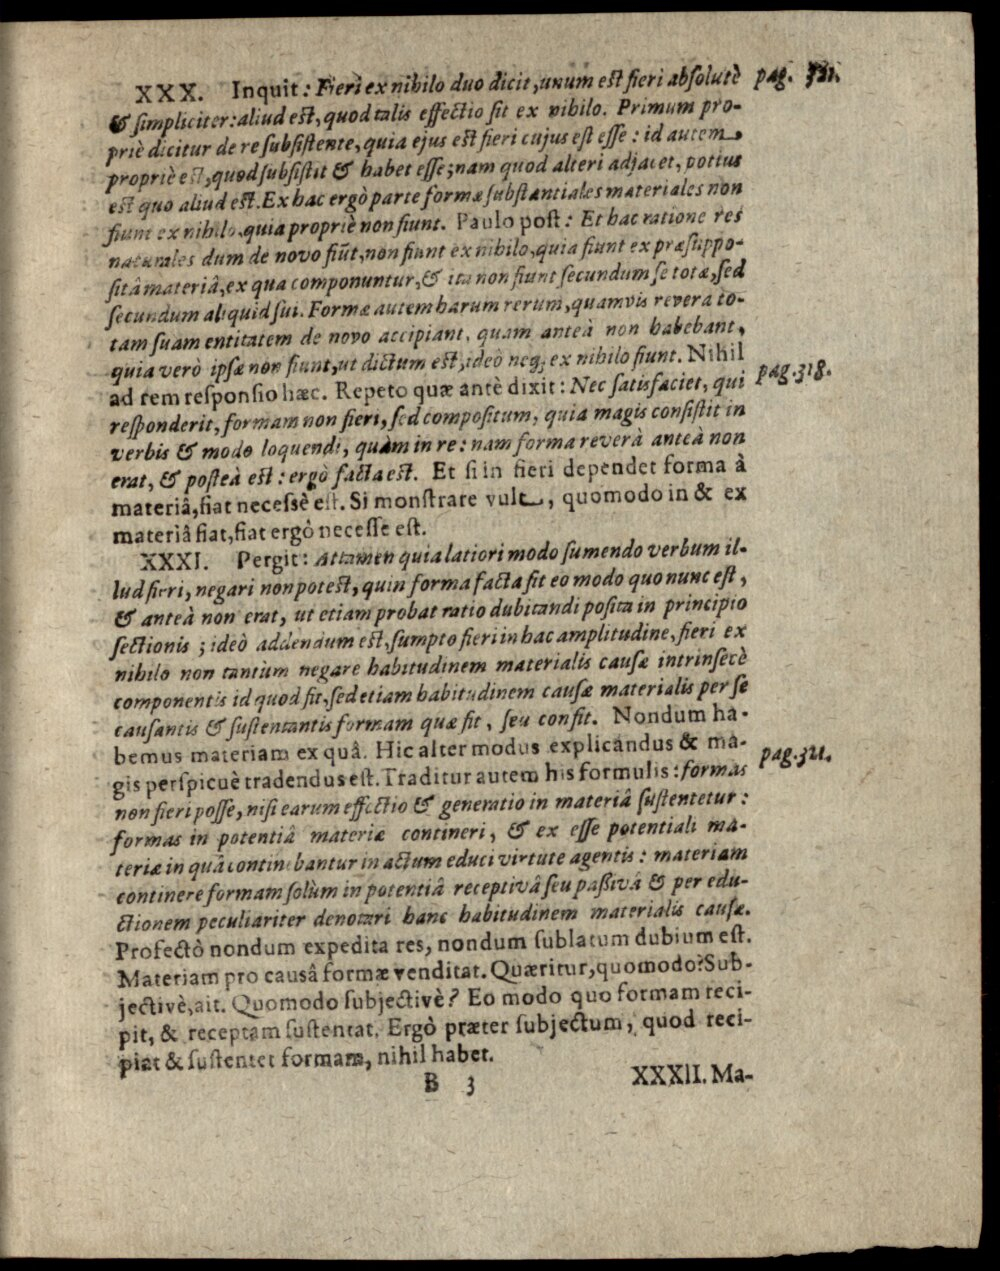 XXX. Inquit: Fieri ex nihilo duo dicit, unum est fieri absolutè pag. 321.
& simpliciter: aliud est, quod talis effectio sit ex nihilo. Primum pro-
priè dicitur de re subsistente, quia ejus est fieri cujus est esse: id autem
propriè est, quod subsistit & habet esse; nam quod alteri adjacet, potius
est quo aliud est. Ex hac ergò parte formæ substantiales materiales non
fiunt ex nihilo, quia propriè non fiunt. Paulo post: Et hac ratione res
naturales dum de novo fiūt, non fiunt ex nihilo, quia fiunt ex præsuppo-
sitâ materiâ, ex qua componuntur, & ita non fiunt secundum se totæ, sed
secundum aliquid sui. Formæ autem harum rerum, quamvis revera to-
tam suam entitatem de novo accipiant, quam anteà non habebant,
quia verò ipsæ non fiunt, ut dictum est, ideò neq; ex nihilo fiunt. Nihil
ad rem responsio hæc. Repeto quæ antè dixit: Nec satisfaciet, qui pag. 318.
responderit, formam non fieri, sed compositum, quia magis consistit in
verbis & modo loquendi, quàm in re: nam forma reverà anteà non
erat, & posteà est: ergò facta est. Et si in fieri dependet forma à
materiâ, fiat necessè est. Si monstrare vult, quomodo in & ex
materiâ fiat, fiat ergò necesse est.
XXXI. Pergit: Attamen quia latiori modo sumendo verbum il-
lud fieri, negari non potest, quin forma facta sit eo modo quo nunc est,
& anteà non erat, ut etiam probat ratio dubitandi posita in principio
sectionis; ideò addendum est, sumpto fieri in hac amplitudine, fieri ex
nihilo non tantùm negare habitudinem materialis causæ intrinsecè
componentis id quod fit, sed etiam habitudinem causæ materialis per se
causantis & sustentantis formam quæ fit, seu confit. Nondum ha-
bemus materiam ex quâ. Hic alter modus explicandus & ma-
gis perspicuè tradendus est. Traditur autem his formulis: formas pag. 321.
non fieri posse, nisi earum effectio & generatio in materiâ sustentetur:
formas in potentiâ materiæ contineri, & ex esse potentiali ma-
teriæ in quâ continebantur in actum educi virtute agentis: materiam
continere formam solùm in potentiâ receptivâ seu passivâ & per edu-
ctionem peculiariter denotari hanc habitudinem materialis causæ.
Profectò nondum expedita res, nondum sublatum dubium est.
Materiam pro causâ formæ venditat. Quæritur, quomodo? Sub-
jectivè, ait. Quomodo subjectivè? Eo modo quo formam reci-
pit, & receptam sustentat. Ergò præter subjectum, quod reci-
piat & sustentet formam, nihil habet.
B 3 XXXII. Ma-